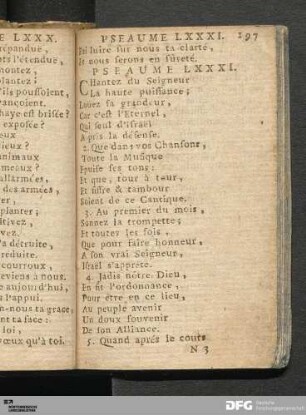 E LXXX.
répandue,
ts l'étendue,
montez,
plantez!
'ils poussoient,
ançoient.
haye est brisée?
exposée?
eux
vieux?
animaux
meaux?
allarmées,
des armées,
rer,
planter;
ltivez,
vez.
'a détruite,
reduite.
courroux,
eviens à nous.
e aujourd'hui,
l'appui.
n-nous ta grace;
nt ta face:
loi,
vœux qu'à toi.
PSEAUME LXXXI. 197
Fai luire sur nous ta clarté,
Et nous serons en sûreté.
PSEAUME LXXXI.
CHantez du Seigneur
La haute puissance;
Louez sa grandeur,
Car c'est l'Eternel,
Qui seul d'Israël
A pris la défense.
2. Que dans vos Chansons,
Toute la Musique
Epuise ses tons:
Et que, tour à tour,
Et fifre & tambour
Soient de ce Cantique.
3. Au premier du mois,
Sonnez la trompette;
Et toutes les fois,
Que pour faire honneur,
A son vrai Seigneur,
Israël s'apprête.
4. Jadis nôtre Dieu,
En fit l'ordonnance,
Pour être en ce lieu,
Au peuple avenir
Un doux souvenir
De son Alliance.
5. Quand aprés le cours
N 3
DFG